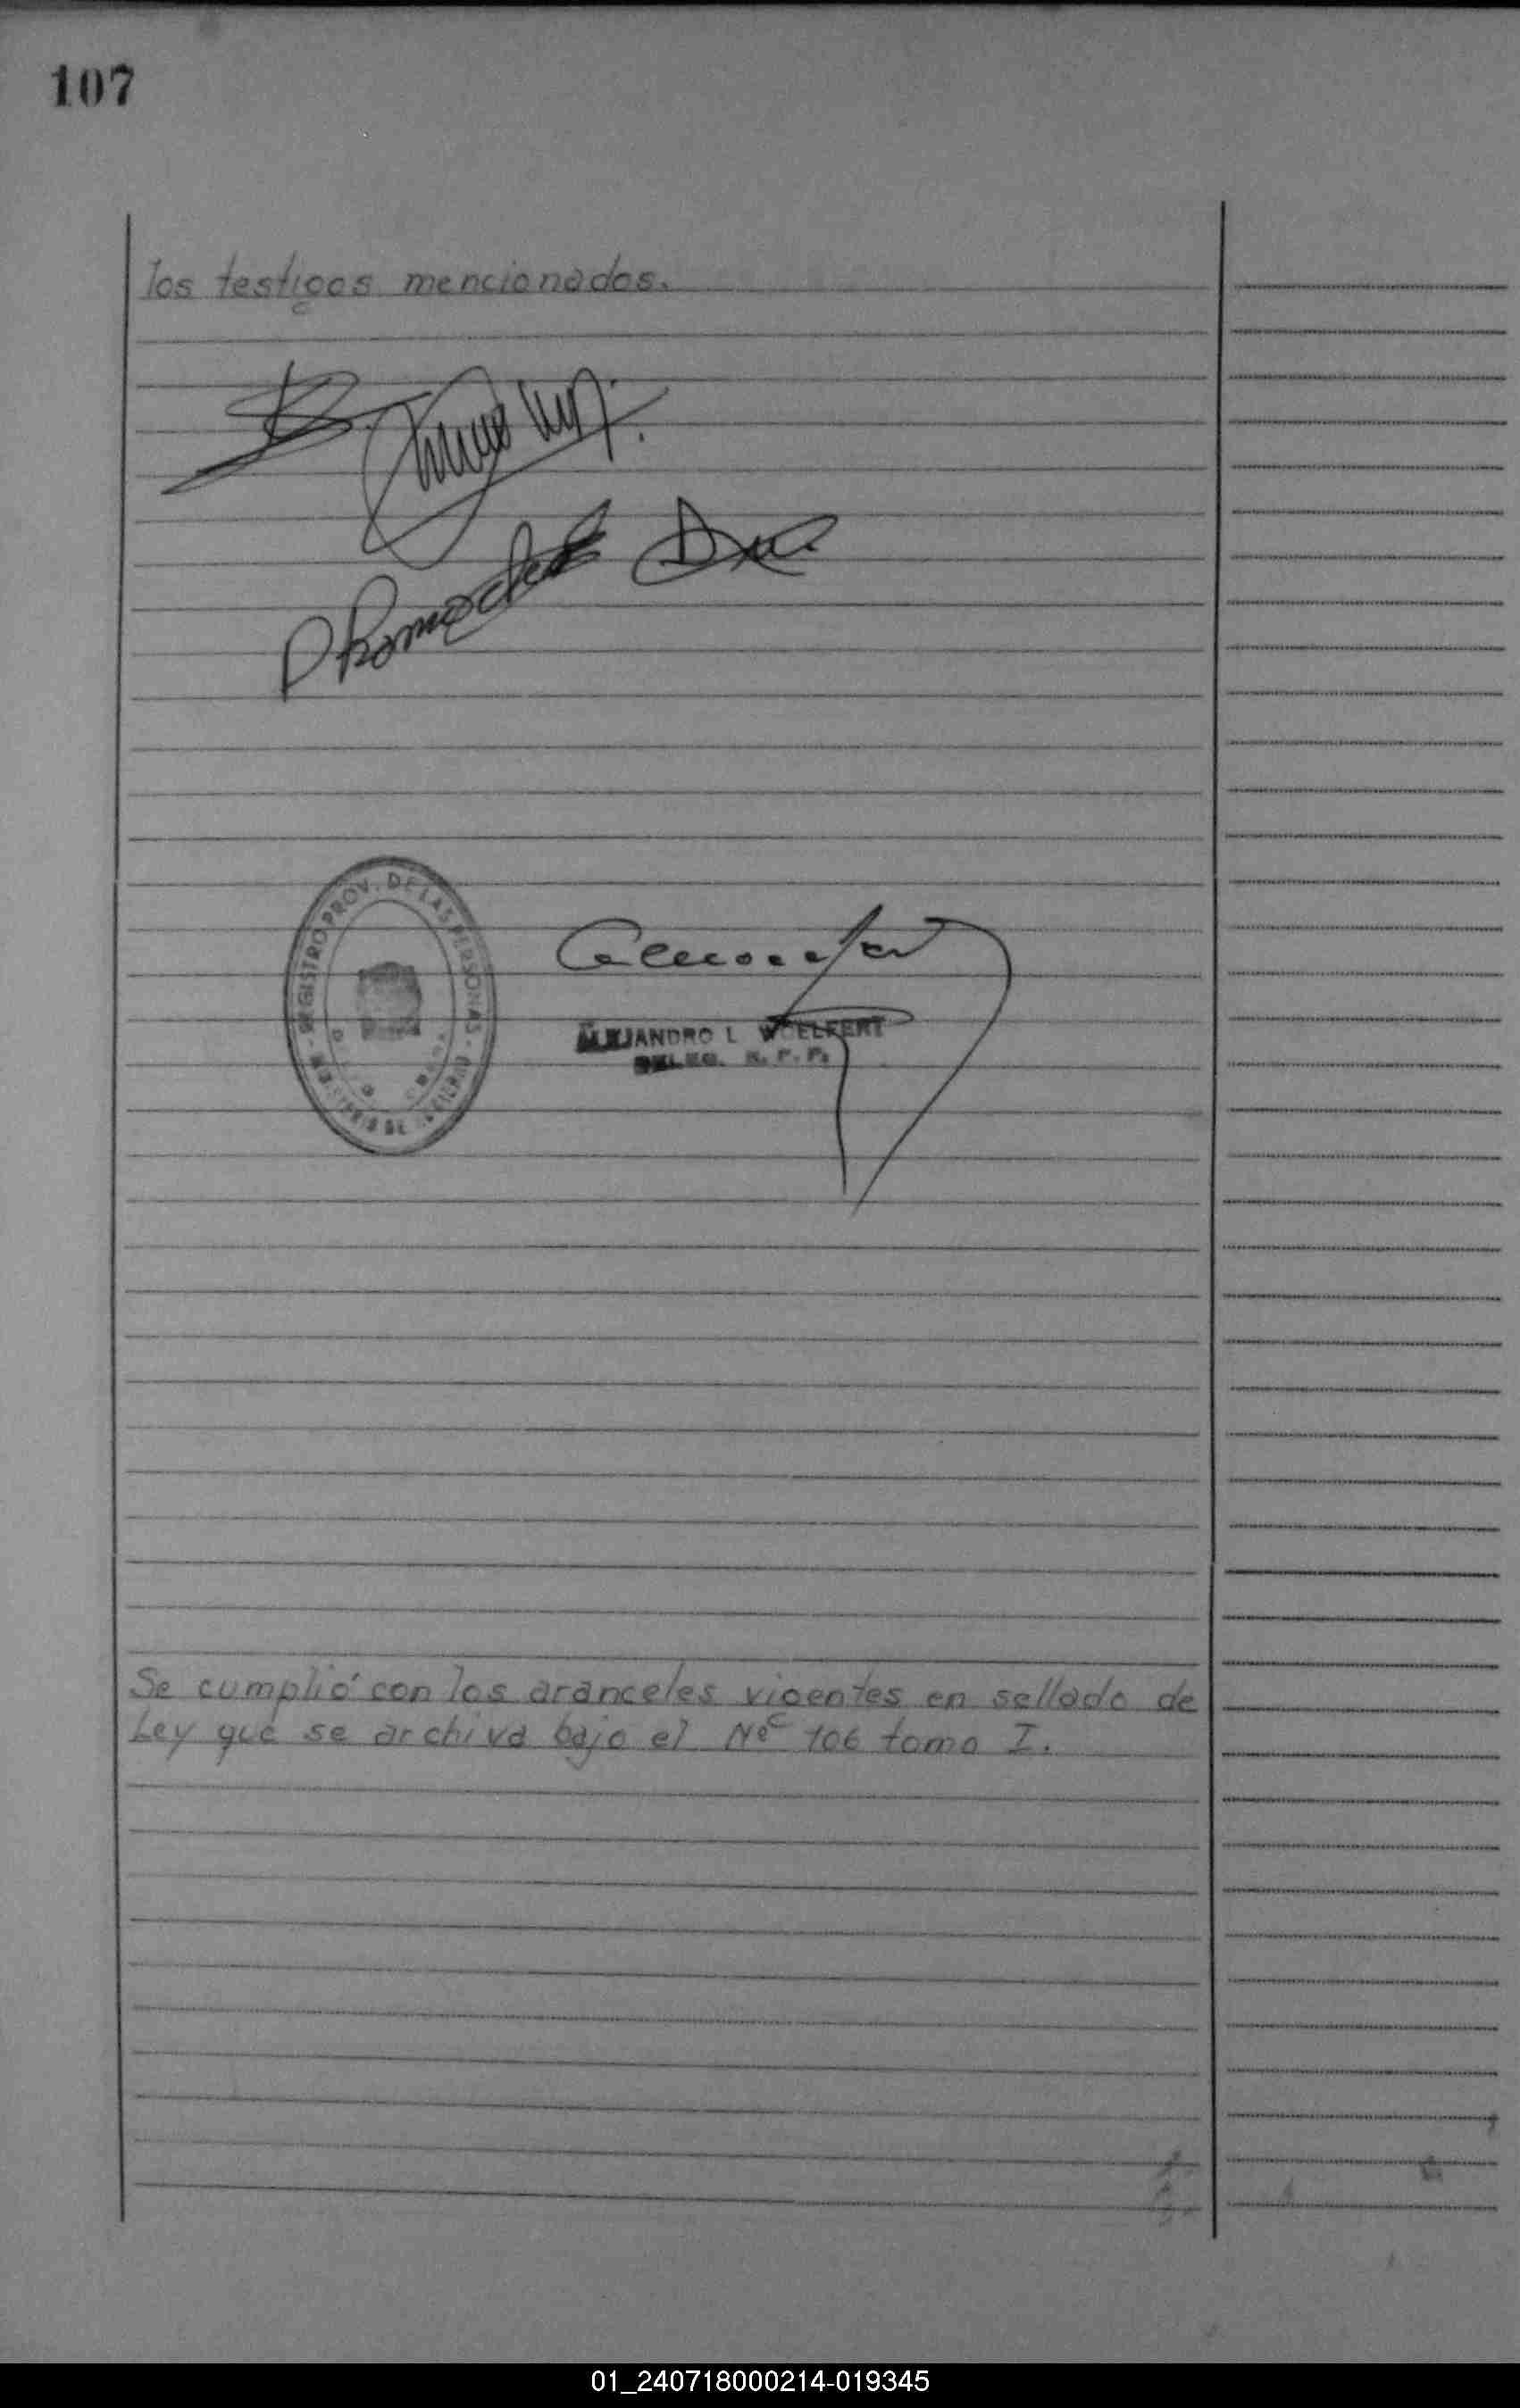 107
los testigos mencionados.
REGISTRO PROV. DE LAS PERSONAS
MINISTERIO DE GOBIERNO
ALEJANDRO L WOELFERT
DELEG. R. P. P.
Se cumplió con los aranceles vigentes en sellado de
Ley que se archiva bajo el Nº 106 tomo I.
01_240718000214-019345